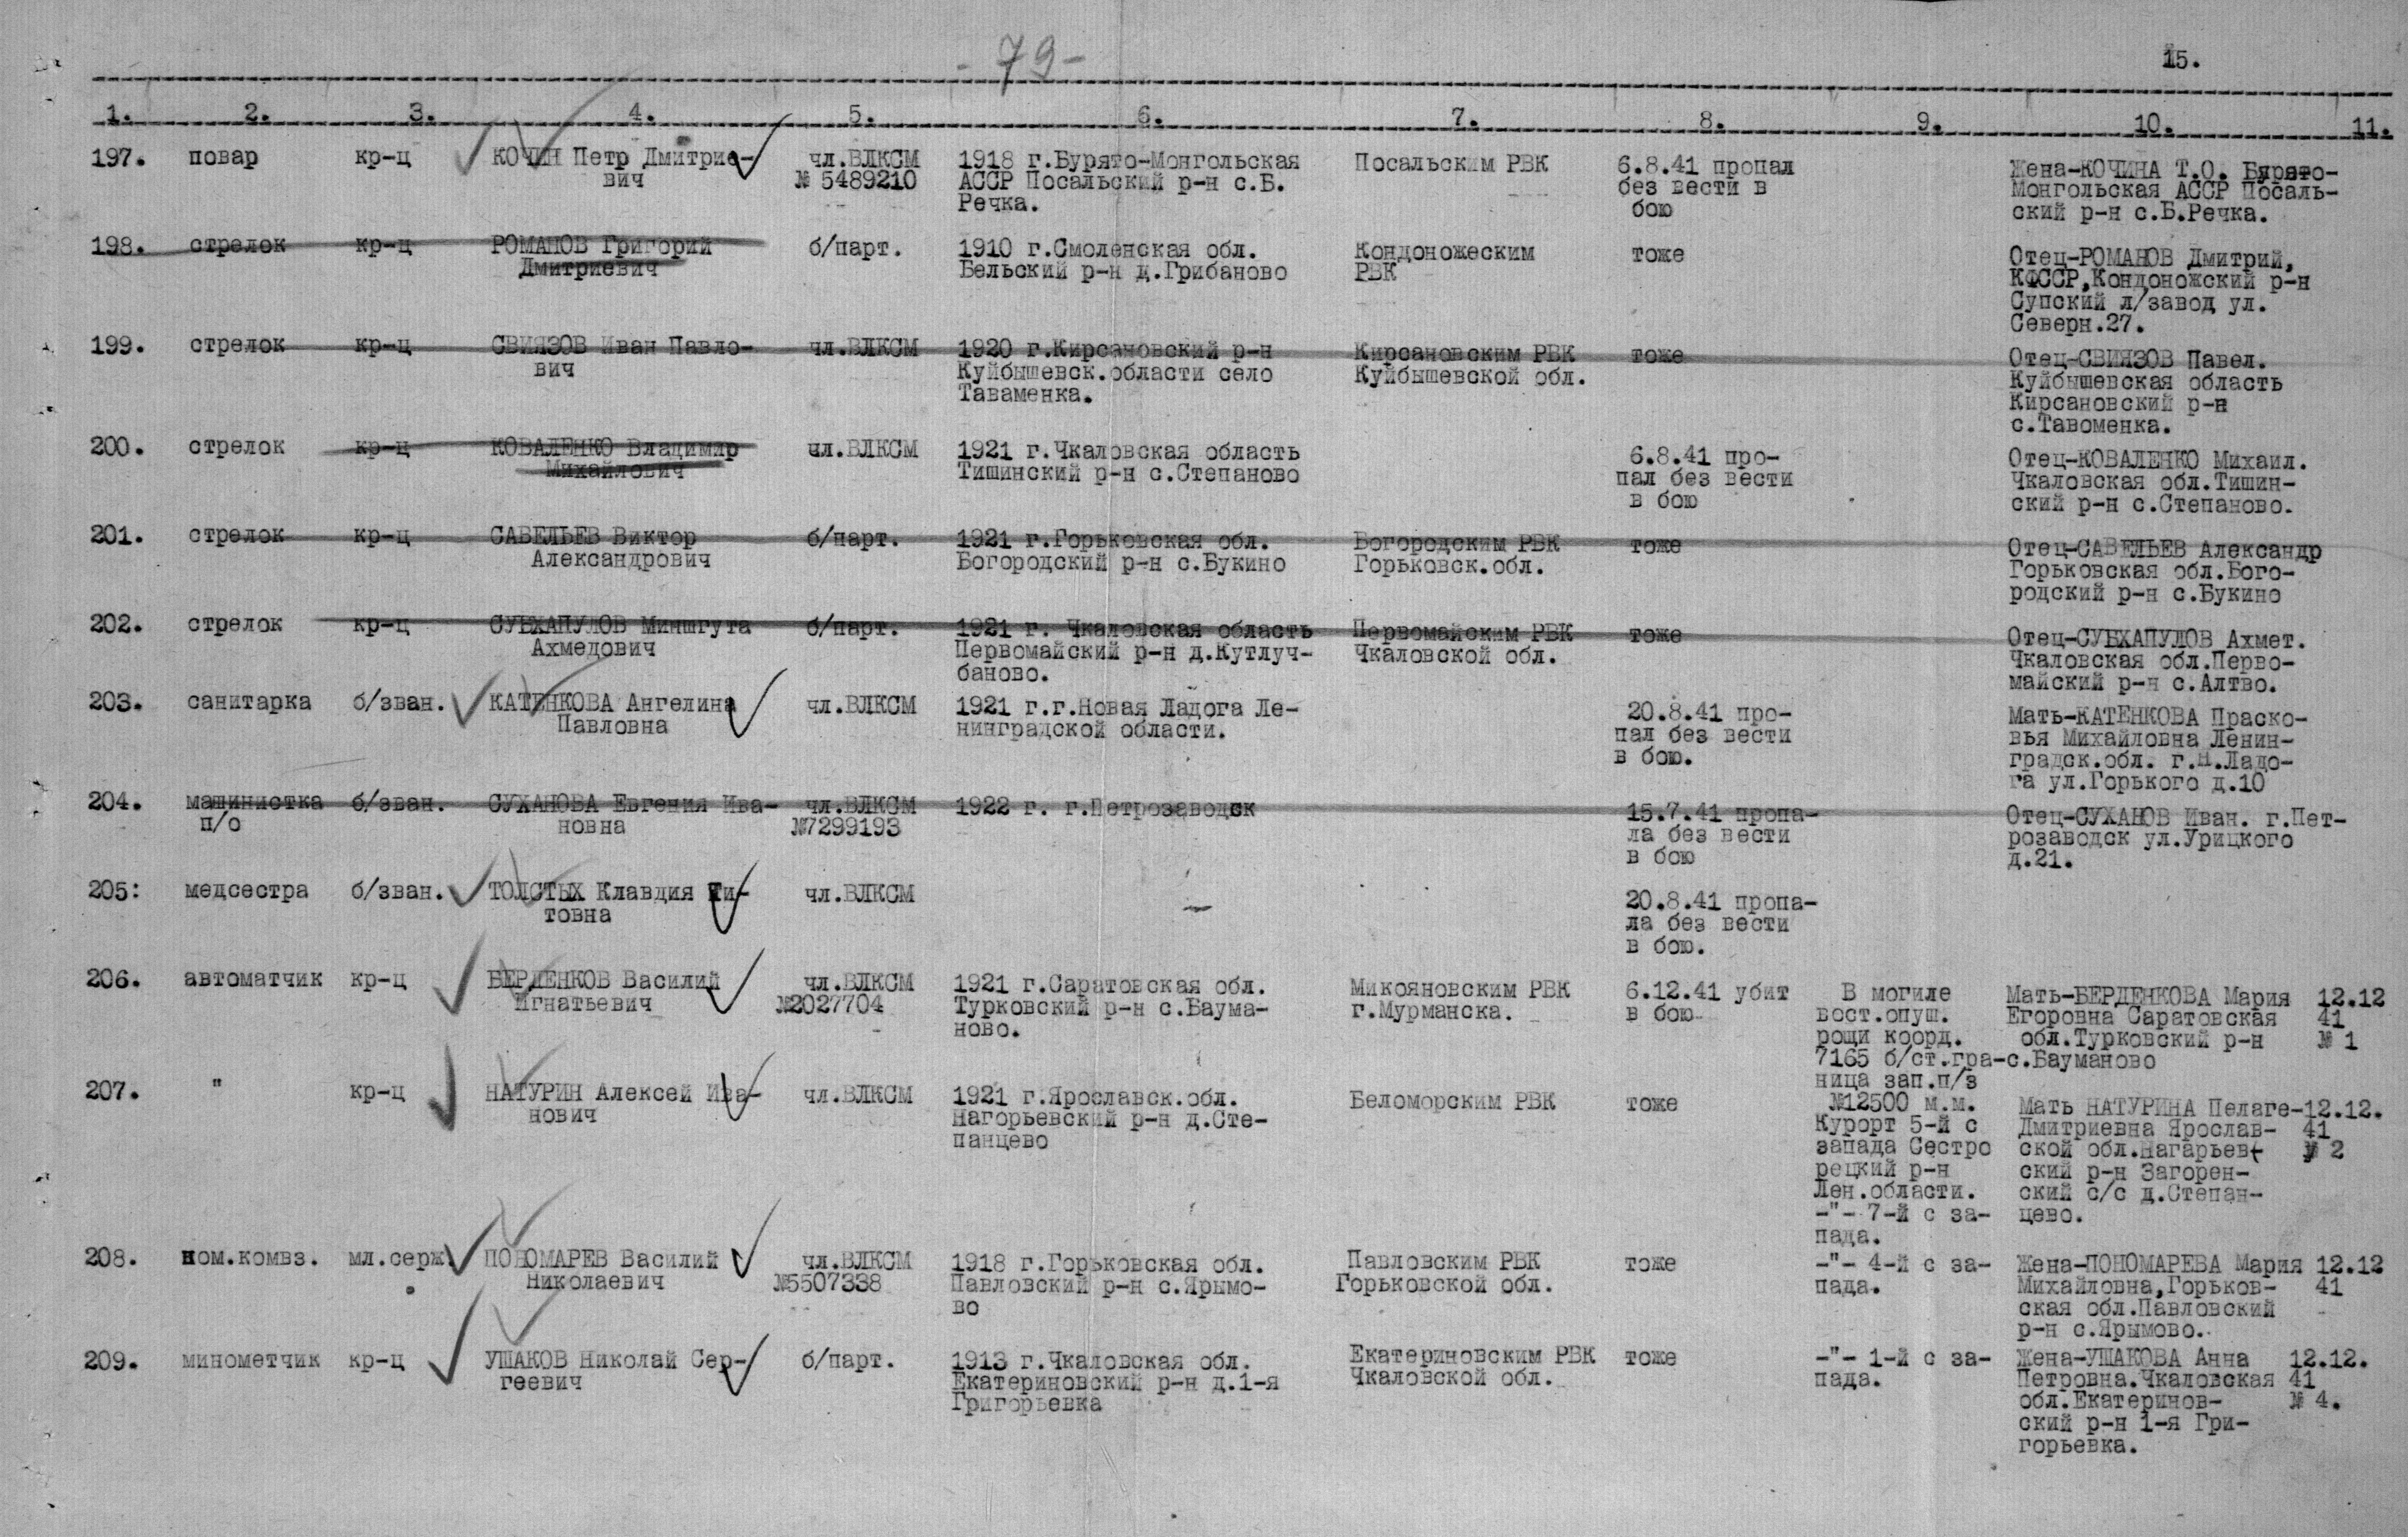 - 79 -
15.
1. 2. 3. 4. 5. 6. 7. 8. 9. 10. 11.
197. повар кр-ц КОЧИН Петр Дмитрие- чл.ВЛКСМ 1918 г.Бурято-Монгольская Посальским РВК 6.8.41 пропал Жена-КОЧИНА Т.О. Бурято-
вич № 5489210 АССР Посальский р-н с.Б. без вести в Монгольская АССР Посаль-
Речка. бою ский р-н с.Б.Речка.
198. стрелок кр-ц РОМАНОВ Григорий б/парт. 1910 г.Смоленская обл. Кондоножеским тоже Отец-РОМАНОВ Дмитрий,
Дмитриевич Бельский р-н д.Грибаново РВК КФССР,Кондоножский р-н
Супский л/завод ул.
Северн.27.
199. стрелок кр-ц СВИЯЗОВ Иван Павло- чл.ВЛКСМ 1920 г.Кирсановский р-н Кирсановским РВК тоже Отец-СВИЯЗОВ Павел.
вич Куйбышевск.области село Куйбышевской обл. Куйбышевская область
Таваменка. Кирсановский р-н
с.Тавоменка.
200. стрелок кр-ц КОВАЛЕНКО Владимир чл.ВЛКСМ 1921 г.Чкаловская область 6.8.41 про- Отец-КОВАЛЕНКО Михаил.
Михайлович Тишинский р-н с.Степаново пал без вести Чкаловская обл.Тишин-
в бою ский р-н с.Степаново.
201. стрелок кр-ц САВЕЛЬЕВ Виктор б/парт. 1921 г.Горьковская обл. Богородским РВК тоже Отец-САВЕЛЬЕВ Александр
Александрович Богородский р-н с.Букино Горьковск.обл. Горьковская обл.Бого-
родский р-н с.Букино
202. стрелок кр-ц СУБХАПУЛОВ Миншгута б/парт. 1921 г. Чкаловская область Первомайским РВК тоже Отец-СУБХАПУЛОВ Ахмет.
Ахмедович Первомайский р-н д.Кутлуч- Чкаловской обл. Чкаловская обл.Перво-
баново. майский р-н с.Алтво.
203. санитарка б/зван. КАТЕНКОВА Ангелина чл.ВЛКСМ 1921 г.г.Новая Ладога Ле- 20.8.41 про- Мать-КАТЕНКОВА Праско-
Павловна нинградской области. пал без вести вья Михайловна Ленин-
в бою. градск.обл. г.Н.Ладо-
га ул.Горького д.10
204. машинистка б/зван. СУХАНОВА Евгения Ива- чл.ВЛКСМ 1922 г. г.Петрозаводск 15.7.41 пропа- Отец-СУХАНОВ Иван. г.Пет-
п/о новна №7299193 ла без вести розаводск ул.Урицкого
в бою д.21.
205: медсестра б/зван. ТОЛСТЫХ Клавдия Ти- чл.ВЛКСМ - 20.8.41 пропа-
товна ла без вести
в бою.
206. автоматчик кр-ц БЕРДЕНКОВ Василий чл.ВЛКСМ 1921 г.Саратовская обл. Микояновским РВК 6.12.41 убит В могиле Мать-БЕРДЕНКОВА Мария 12.12
Игнатьевич №2027704 Турковский р-н с.Баума- г.Мурманска. в бою вост.опуш. Егоровна Саратовская 41
ново. рощи коорд. обл.Турковский р-н № 1
7165 б/ст.гра-с.Бауманово
ница зап.п/з
207. " кр-ц НАТУРИН Алексей Ива- чл.ВЛКСМ 1921 г.Ярославск.обл. Беломорским РВК тоже №12500 м.м. Мать НАТУРИНА Пелаге-12.12.
нович Нагорьевский р-н д.Сте- Курорт 5-й с Дмитриевна Ярослав- 41
панцево запада Сестро ской обл.Нагарьев- № 2
рецкий р-н ский р-н Загорен-
Лен.области. ский с/с д.Степан-
-"- 7-й с за- цево.
пада.
208. пом.комвз. мл.серж. ПОНОМАРЕВ Василий чл.ВЛКСМ 1918 г.Горьковская обл. Павловским РВК тоже -"- 4-й с за- Жена-ПОНОМАРЕВА Мария 12.12
Николаевич №5507338 Павловский р-н с.Ярымо- Горьковской обл. пада. Михайловна,Горьков- 41
во ская обл.Павловский
р-н с.Ярымово.
209. минометчик кр-ц УШАКОВ Николай Сер- б/парт. 1913 г.Чкаловская обл. Екатериновским РВК тоже -"- 1-й с за- Жена-УШАКОВА Анна 12.12.
геевич Екатериновский р-н д.1-я Чкаловской обл. пада. Петровна.Чкаловская 41
Григорьевка обл.Екатеринов- № 4.
ский р-н 1-я Гри-
горьевка.